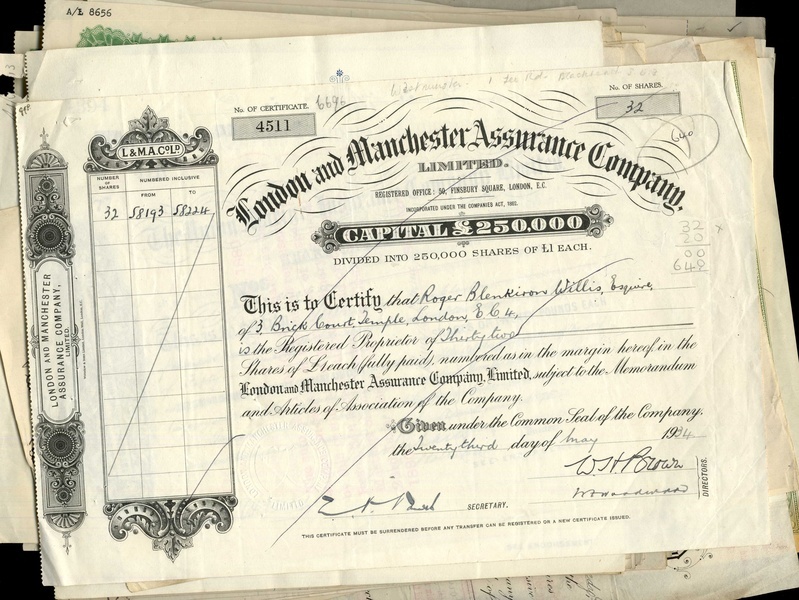 A/L 8656
No. OF CERTIFICATE.
6696
4511
Westminster.
No. OF SHARES.
32
640
L & M.A. Co LD
London and Manchester Assurance Company,
LIMITED.
REGISTERED OFFICE: 50, FINSBURY SQUARE, LONDON, E.C.
INCORPORATED UNDER THE COMPANIES ACT, 1862.
CAPITAL £250,000
DIVIDED INTO 250,000 SHARES OF £1 EACH.
NUMBER OF SHARES
NUMBERED INCLUSIVE
FROM TO
32 58193 58224
32 x
20
00
640
LONDON AND MANCHESTER
ASSURANCE COMPANY,
LIMITED.
This is to Certify that Roger Blenkiron Willis, Esquire,
of 3, Brick Court, Temple, London, E C 4,
is the Registered Proprietor of Thirty two
Shares of £1 each (fully paid), numbered as in the margin hereof, in the
London and Manchester Assurance Company, Limited, subject to the Memorandum
and Articles of Association of the Company.
Given under the Common Seal of the Company,
the Twenty third day of May 1934
W H Brown
DIRECTORS.
SECRETARY.
THIS CERTIFICATE MUST BE SURRENDERED BEFORE ANY TRANSFER CAN BE REGISTERED OR A NEW CERTIFICATE ISSUED.